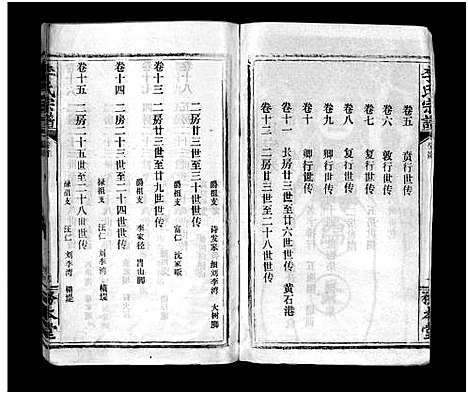 李氏宗谱
卷五　贲行世传
卷六　敦行世传
卷七　复行世传
卷八　复行世传
卷九　卿行世传
卷十　卿行世传
卷十一　长房廿三世至廿六世世传　黄石港
卷十三　二房廿三世至二十八世世传
务本堂
二房廿三世至三十世世传
爵祖支　诗发家　细刘李湾　大树脚
卷十三　二房廿三世至廿九世世传
爵祖支　富仁　沈家嘴
李家径　肖山脚
卷十四　二房二十三世至二十四世世传
禄祖支　汪仁　刘李湾　横堤
卷十五　二房二十五世至二十八世世传
禄祖支　汪仁　刘李湾　横堤
李氏宗谱